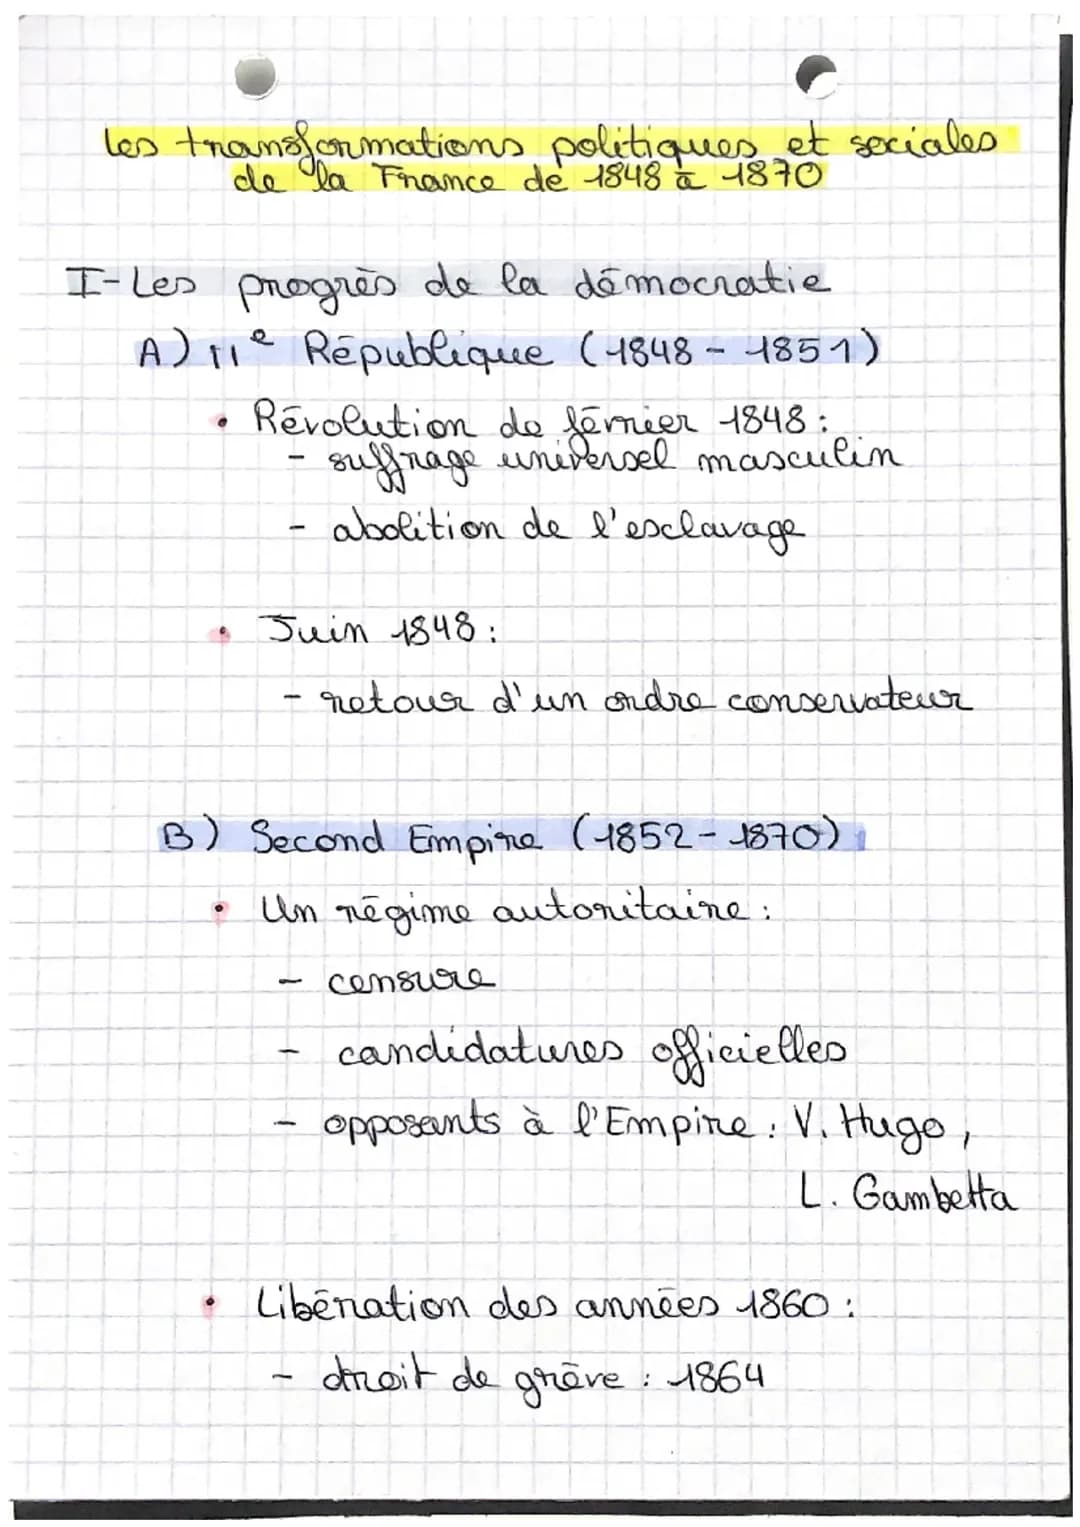 Les transformations politiques et sociales
de la France de 1848 à 1870
I-Les progrès de la démocratie
A) IIe République (1848 - 1851)
• Révolution de février 1848 :
- suffrage universel masculin
- abolition de l'esclavage
• Juin 1848 :
- retour d'un ordre conservateur
B) Second Empire (1852 - 1870)
• Un régime autoritaire :
- censure
- candidatures officielles
- opposants à l'Empire : V. Hugo,
L. Gambetta
• Libération des années 1860 :
- droit de grève : 1864